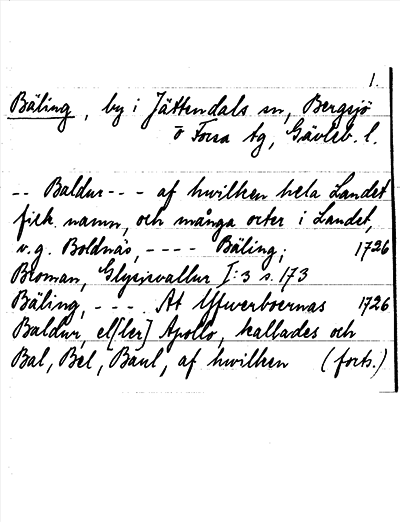 1.
Bäling, by i Jättendals sn, Bergsjö
o Forsa tg, Gävleb. l.
-- Baldur --- af hwilken hela Landet
fick namn, och många orter i Landet,
v.g. Boldnäs, ---- Bäling; 1726
Broman, Glysisvallur I:3 s. 173
Bäling, ---. At Yfwerboernas 1726
Baldur, el[ler] Apollo, kallades och
Bal, Bel, Baul, af hwilken (forts.)